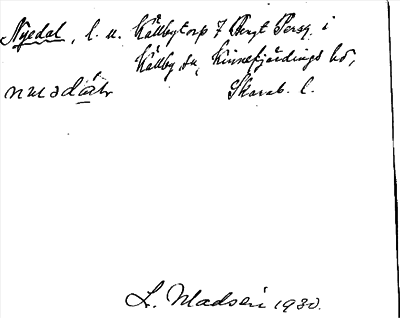 Nyedal, l. u. Källbytorp 7 Bengt Persg. i
Källby sn, Kinnefjärdings hd,
Skarab. l.
L. Madsén 1930.